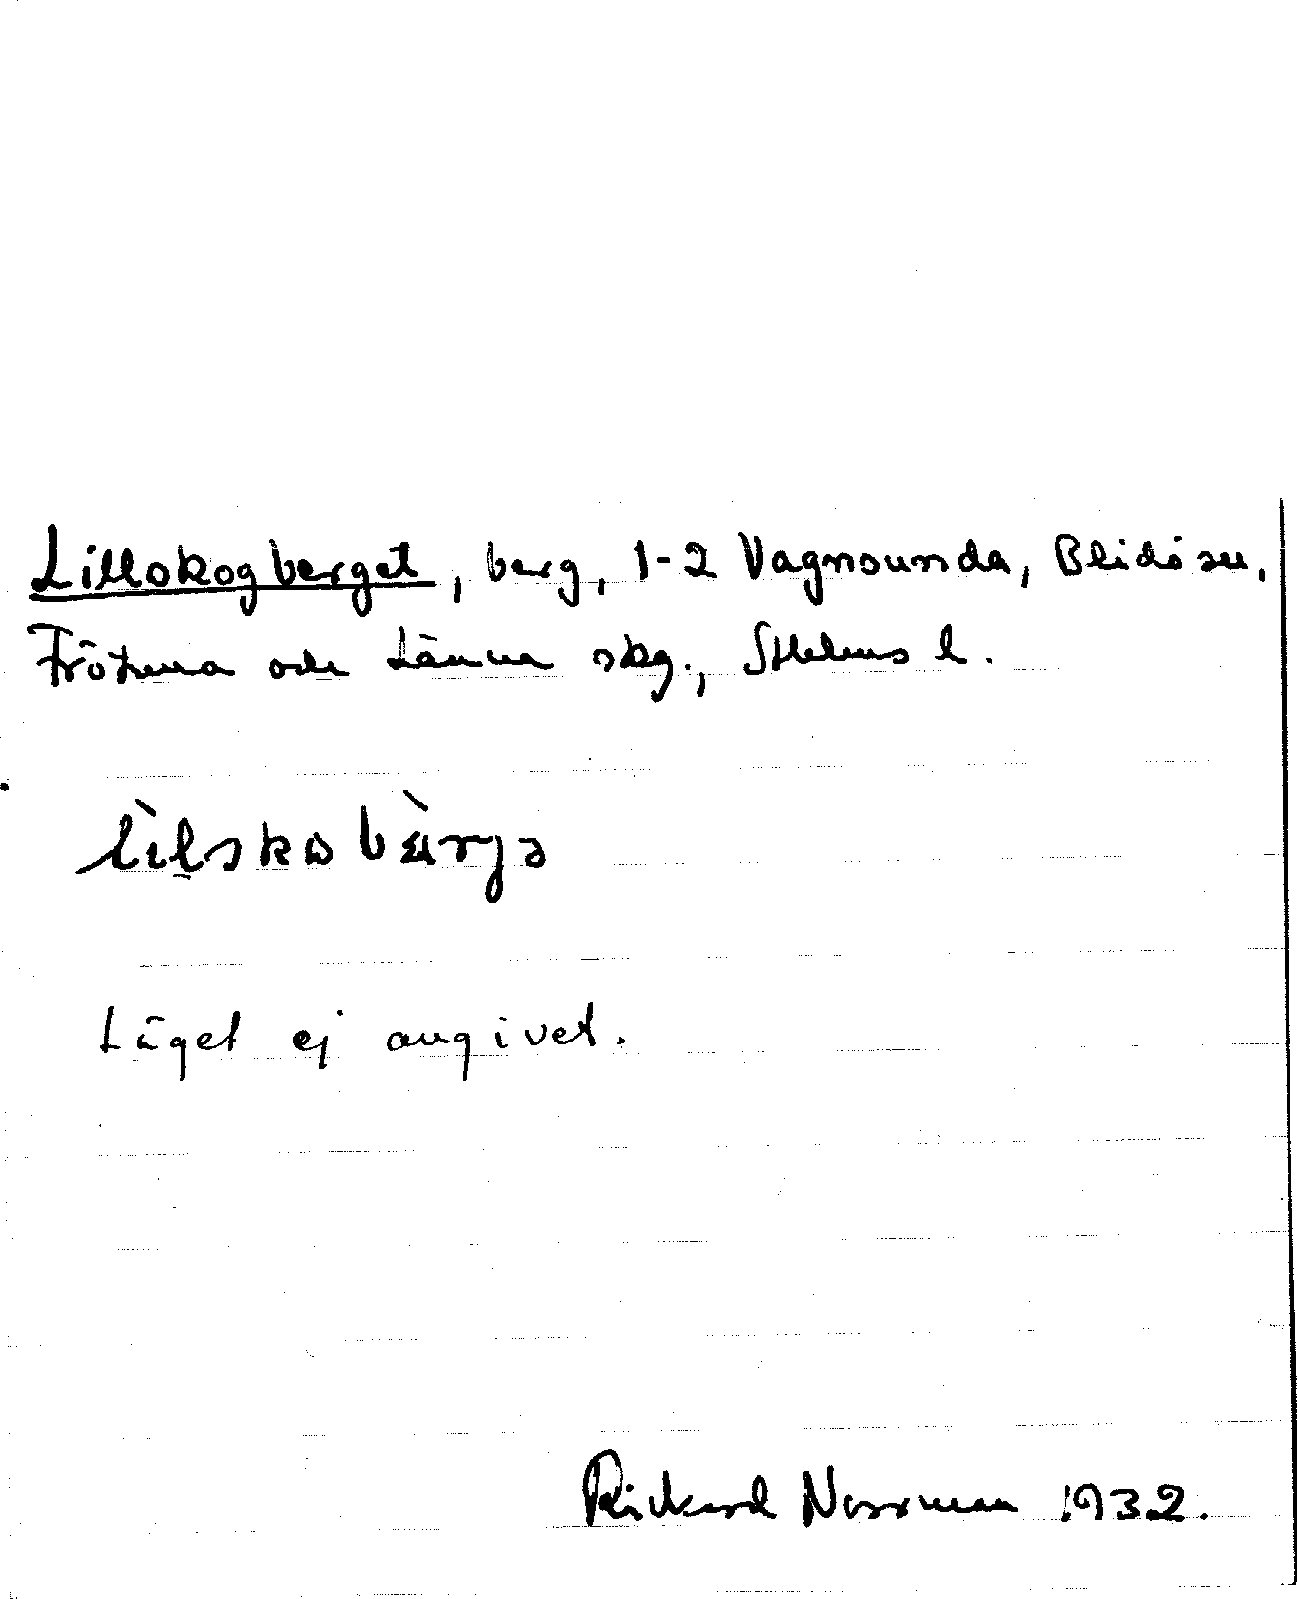 Lillskogberget, berg, 1-2 Vagnsunda, Blidö sn,
Frötuna och Länna skg., Sthlms l.
lìlskobæ̀rjə
Läget ej angivet.
Rickard Norrman 1932.